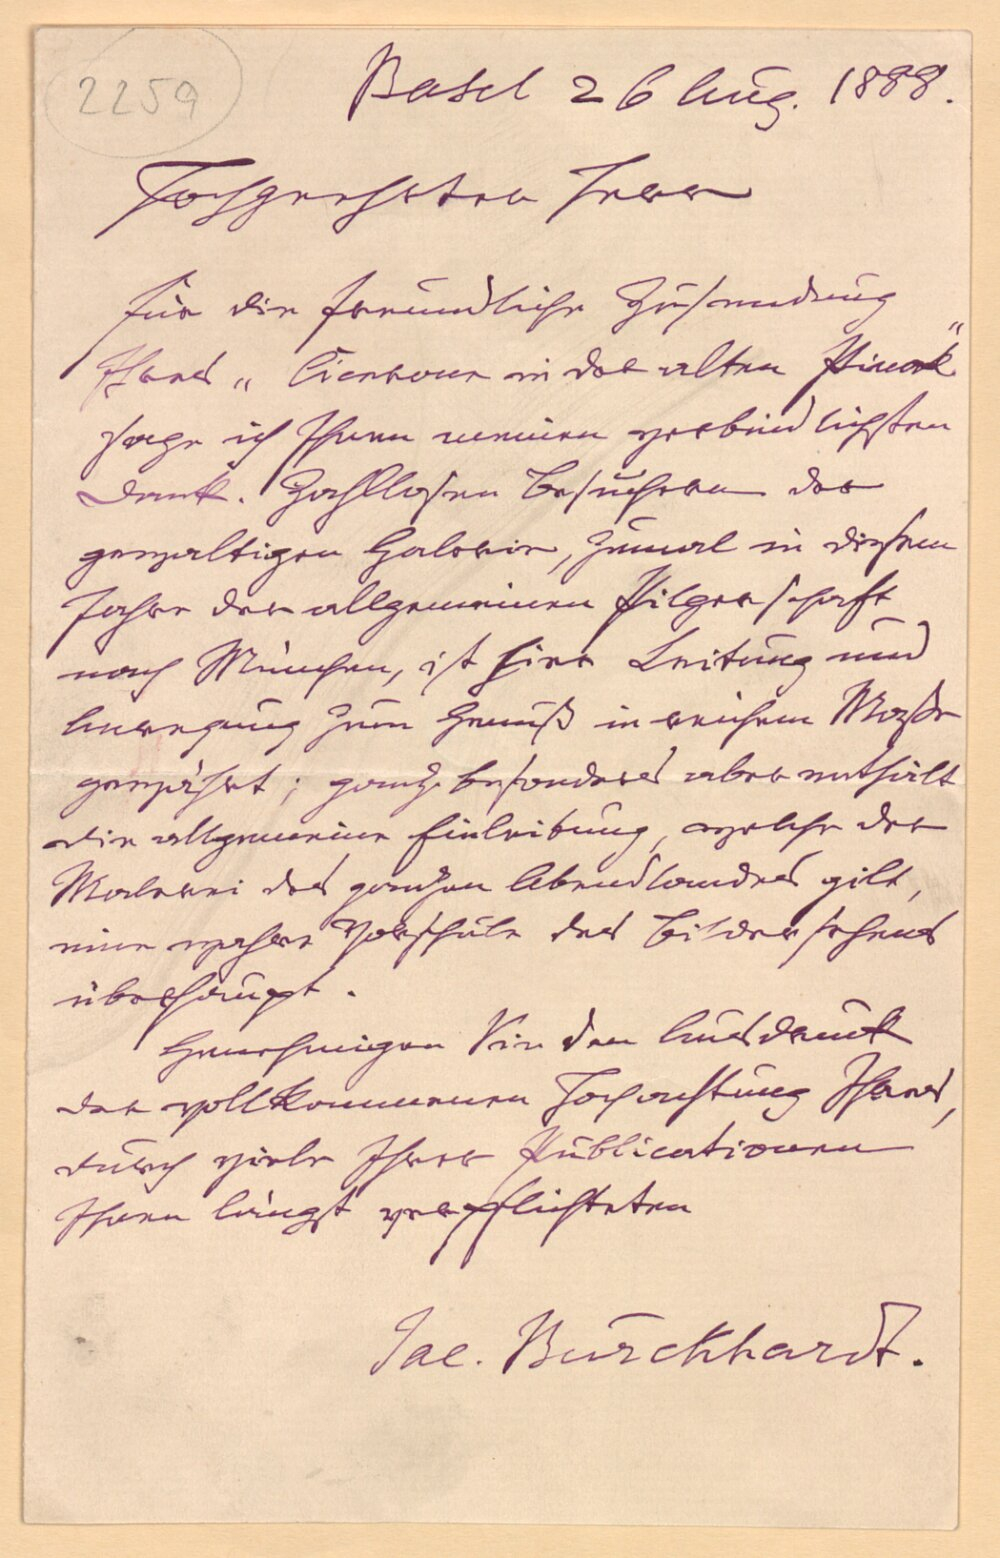 2259
Basel 26 Aug. 1888.
Hochgeehrter Herr
Für die freundliche Zusendung
Ihres „Cicerone in der alten Pinak."
sage ich Ihnen meinen verbindlichsten
Dank. Zahllosen Besuchern der
gewaltigen Galerie, zumal in diesem
Jahre der allgemeinen Pilgerschaft
nach München, ist hier Leitung und
Anregung zum Genuß in reichem Maße
gewährt; ganz besonders aber enthält
die allgemeine Einleitung, welche der
Malerei des ganzen Abendlandes gilt,
eine wahre Vorschule des Bildersehens
überhaupt.
Genehmigen Sie den Ausdruck
der vollkommenen Hochachtung Ihres,
durch viele Ihrer Publicationen
Ihnen längst verpflichteten
Jac. Burckhardt.